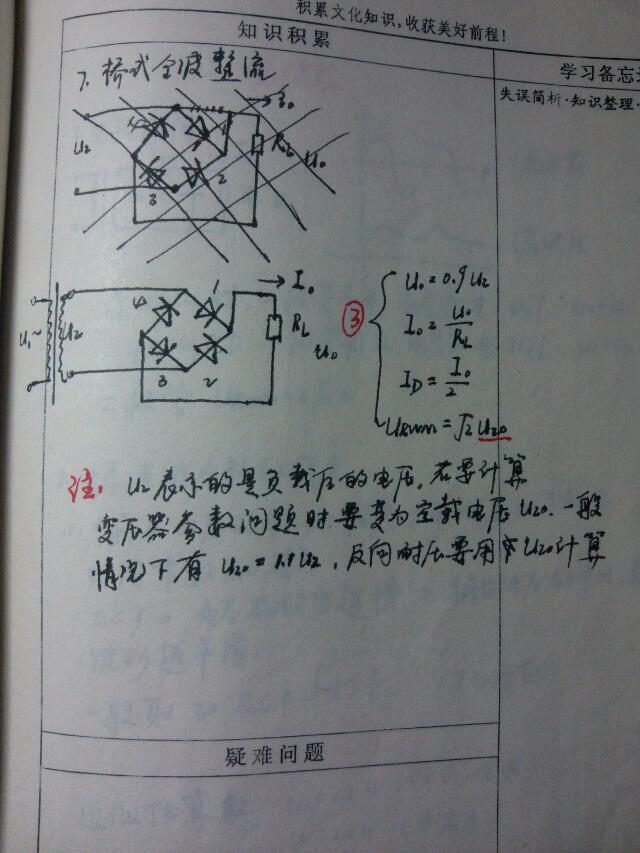 积累文化知识,收获美好前程!
知识积累
学习备忘
失误简析·知识整理·
7、桥式全波整流
U₂
4
1
3
2
I₀
R_L
U₀
U₁~
U₂
4
1
3
2
I₀
R_L
U₀
③
U₀=0.9U₂
I₀=U₀/R_L
I_D=I₀/2
U_RWM=√2U₂₀
注: U₂表示的是负载后的电压,若要计算
变压器参数问题时要变为空载电压U₂₀.一般
情况下有U₂₀=1.1U₂,反向耐压要用U₂₀计算
疑难问题